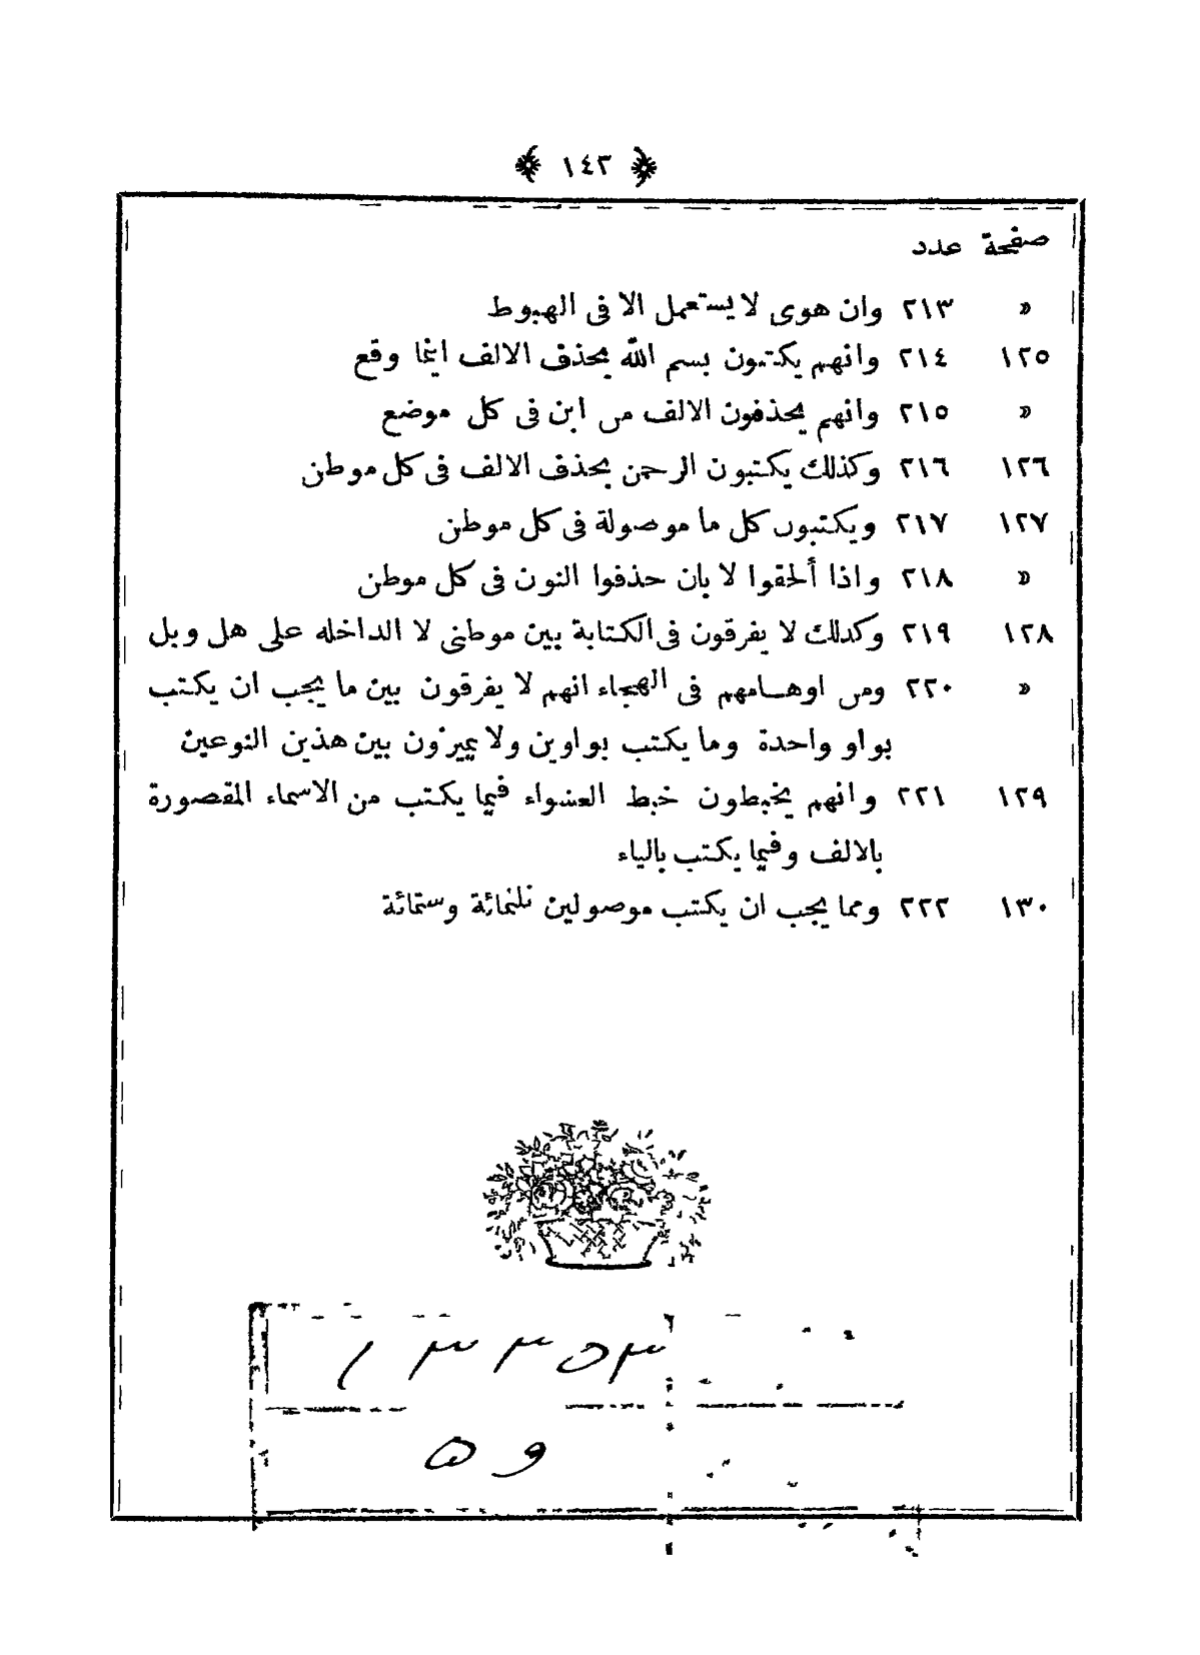 ﴿ ١٤٢ ﴾
صفحة عدد
» ٢١٣ وان هوى لا يستعمل الا فى الهبوط
١٢٥ ٢١٤ وانهم يكتبون بسم الله بحذف الالف اينما وقع
» ٢١٥ وانهم يحذفون الالف من ابن فى كل موضع
١٢٦ ٢١٦ وكذلك يكتبون الرحمن بحذف الالف فى كل موطن
١٢٧ ٢١٧ ويكتبون كل ما موصولة فى كل موطن
» ٢١٨ واذا ألحقوا لا بان حذفوا النون فى كل موطن
١٢٨ ٢١٩ وكذلك لا يفرقون فى الكتابة بين موطنى لا الداخله على هل وبل
» ٢٢٠ ومن اوهامهم فى الهجاء انهم لا يفرقون بين ما يجب ان يكتب
بواو واحدة وما يكتب بواوين ولا يميزون بين هذين النوعين
١٢٩ ٢٢١ وانهم يخبطون خبط العشواء فيما يكتب من الاسماء المقصورة
بالالف وفيما يكتب بالياء
١٣٠ ٢٢٢ ومما يجب ان يكتب موصولين ثلثمائة وستمائة